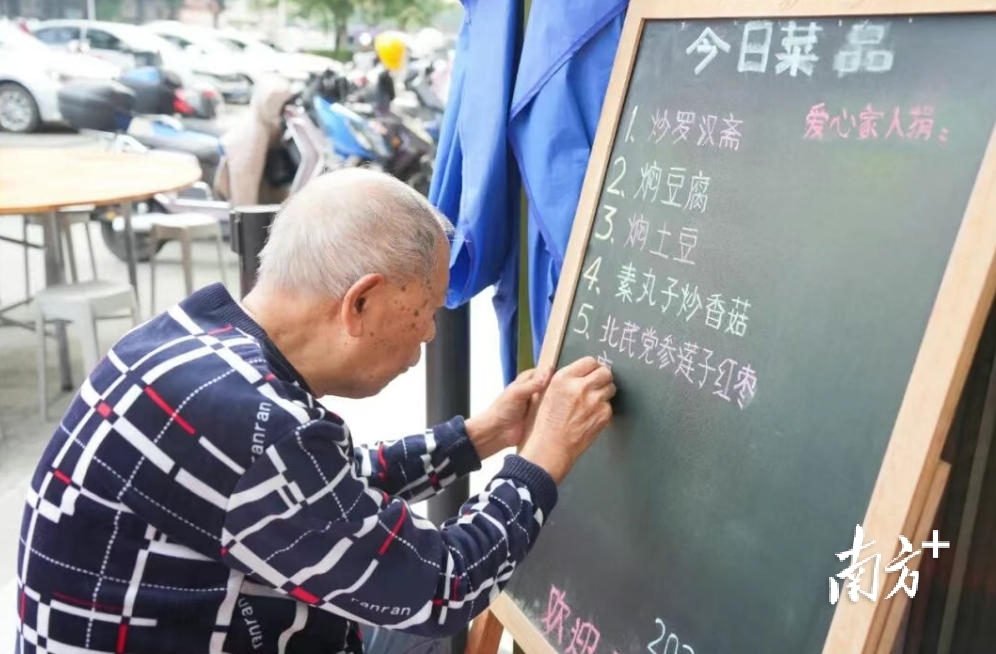 今日菜品
1. 炒罗汉斋
爱心家人捐：
2. 焖豆腐
3. 焖土豆
4. 素丸子炒香菇
5. 北芪党参莲子红枣
欢迎
202
ranran
ranran
ranran
南方+